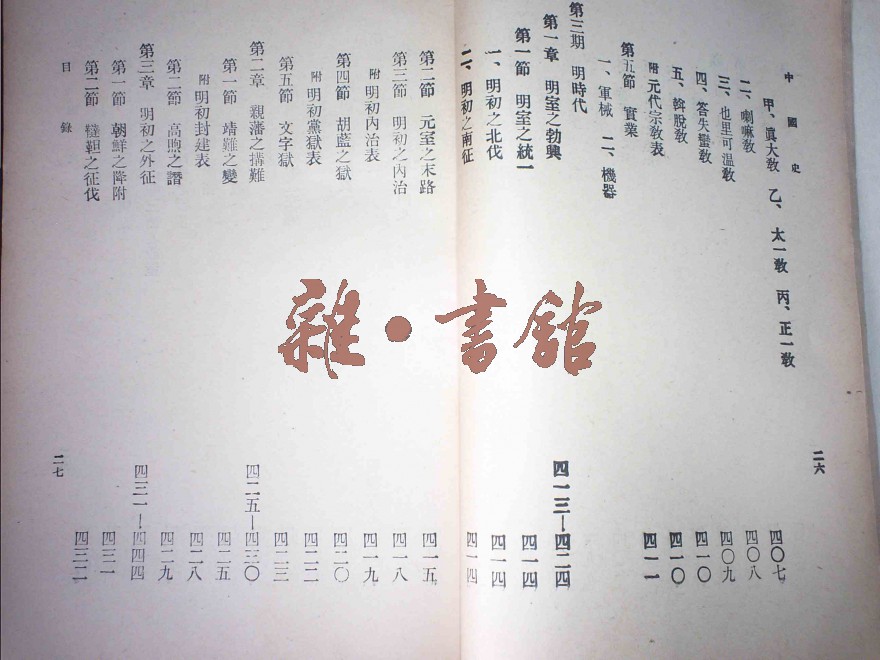 中國史
二六
甲、眞大敎 乙、太一敎 丙、正一敎 四〇七
二、喇嘛敎 四〇八
三、也里可溫敎 四〇九
四、答失蠻敎 四一〇
五、斡脫敎 四一〇
附 元代宗敎表 四一一
第五節 實業
一、軍械 二、機器
第三期 明時代
第一章 明室之勃興 四一三—四二四
第一節 明室之統一 四一四
一、明初之北伐 四一四
二、明初之南征 四一四
第二節 元室之末路 四一五
第三節 明初之內治 四一八
附 明初內治表 四一九
第四節 胡藍之獄 四二〇
附 明初黨獄表 四二二
第五節 文字獄 四二三
第二章 親藩之搆難 四二五—四三〇
第一節 靖難之變 四二五
附 明初封建表 四二八
第二節 高煦之譖 四二九
第三章 明初之外征 四三一—四四四
第一節 朝鮮之降附 四三一
第二節 韃靼之征伐 四三二
目錄
二七
雜·書館